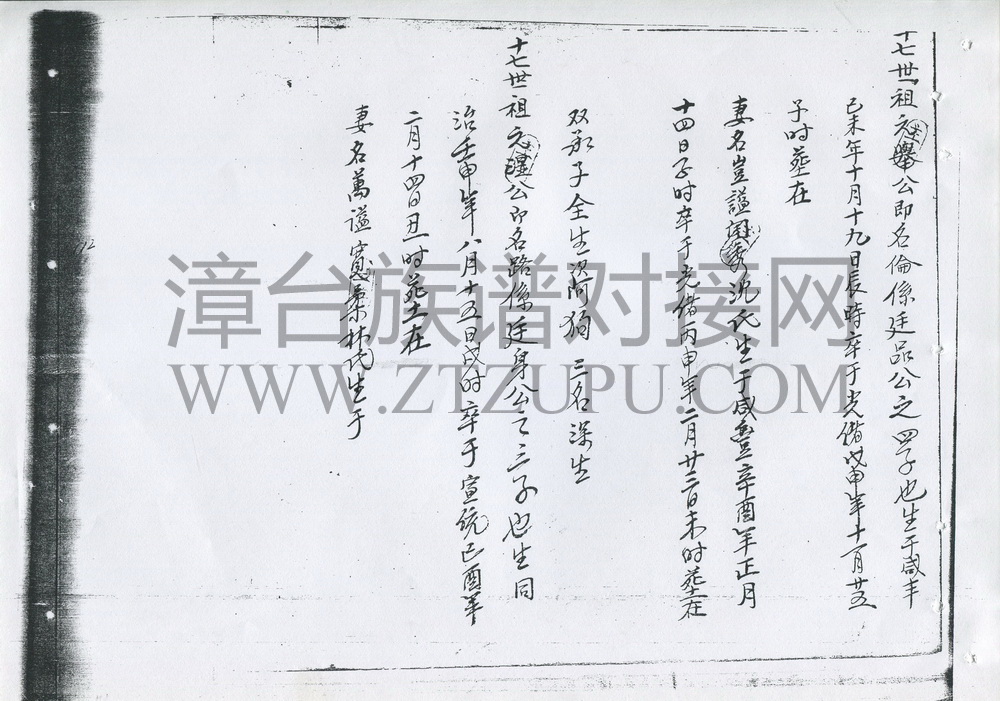 十七世祖元舉公即名倫係廷品公之四子也生于咸丰
己未年十月十九日辰時卒于光緒戊申年十一月廿五
子时葬在
妻名豈謚閨秀沈氏生于咸豐辛酉年正月
十四日子时卒于光緒丙申年二月廿三日未时葬在
双承子全生 次阿狗 三名深生
十七世祖元瑾公即名路係廷身公之三子也生同
治壬申年八月十五日戌时卒于宣統己酉年
二月十四日丑时葬在
妻名萬謚寬慕林氏生于
12
漳台族谱对接网
WWW.ZTZUPU.COM